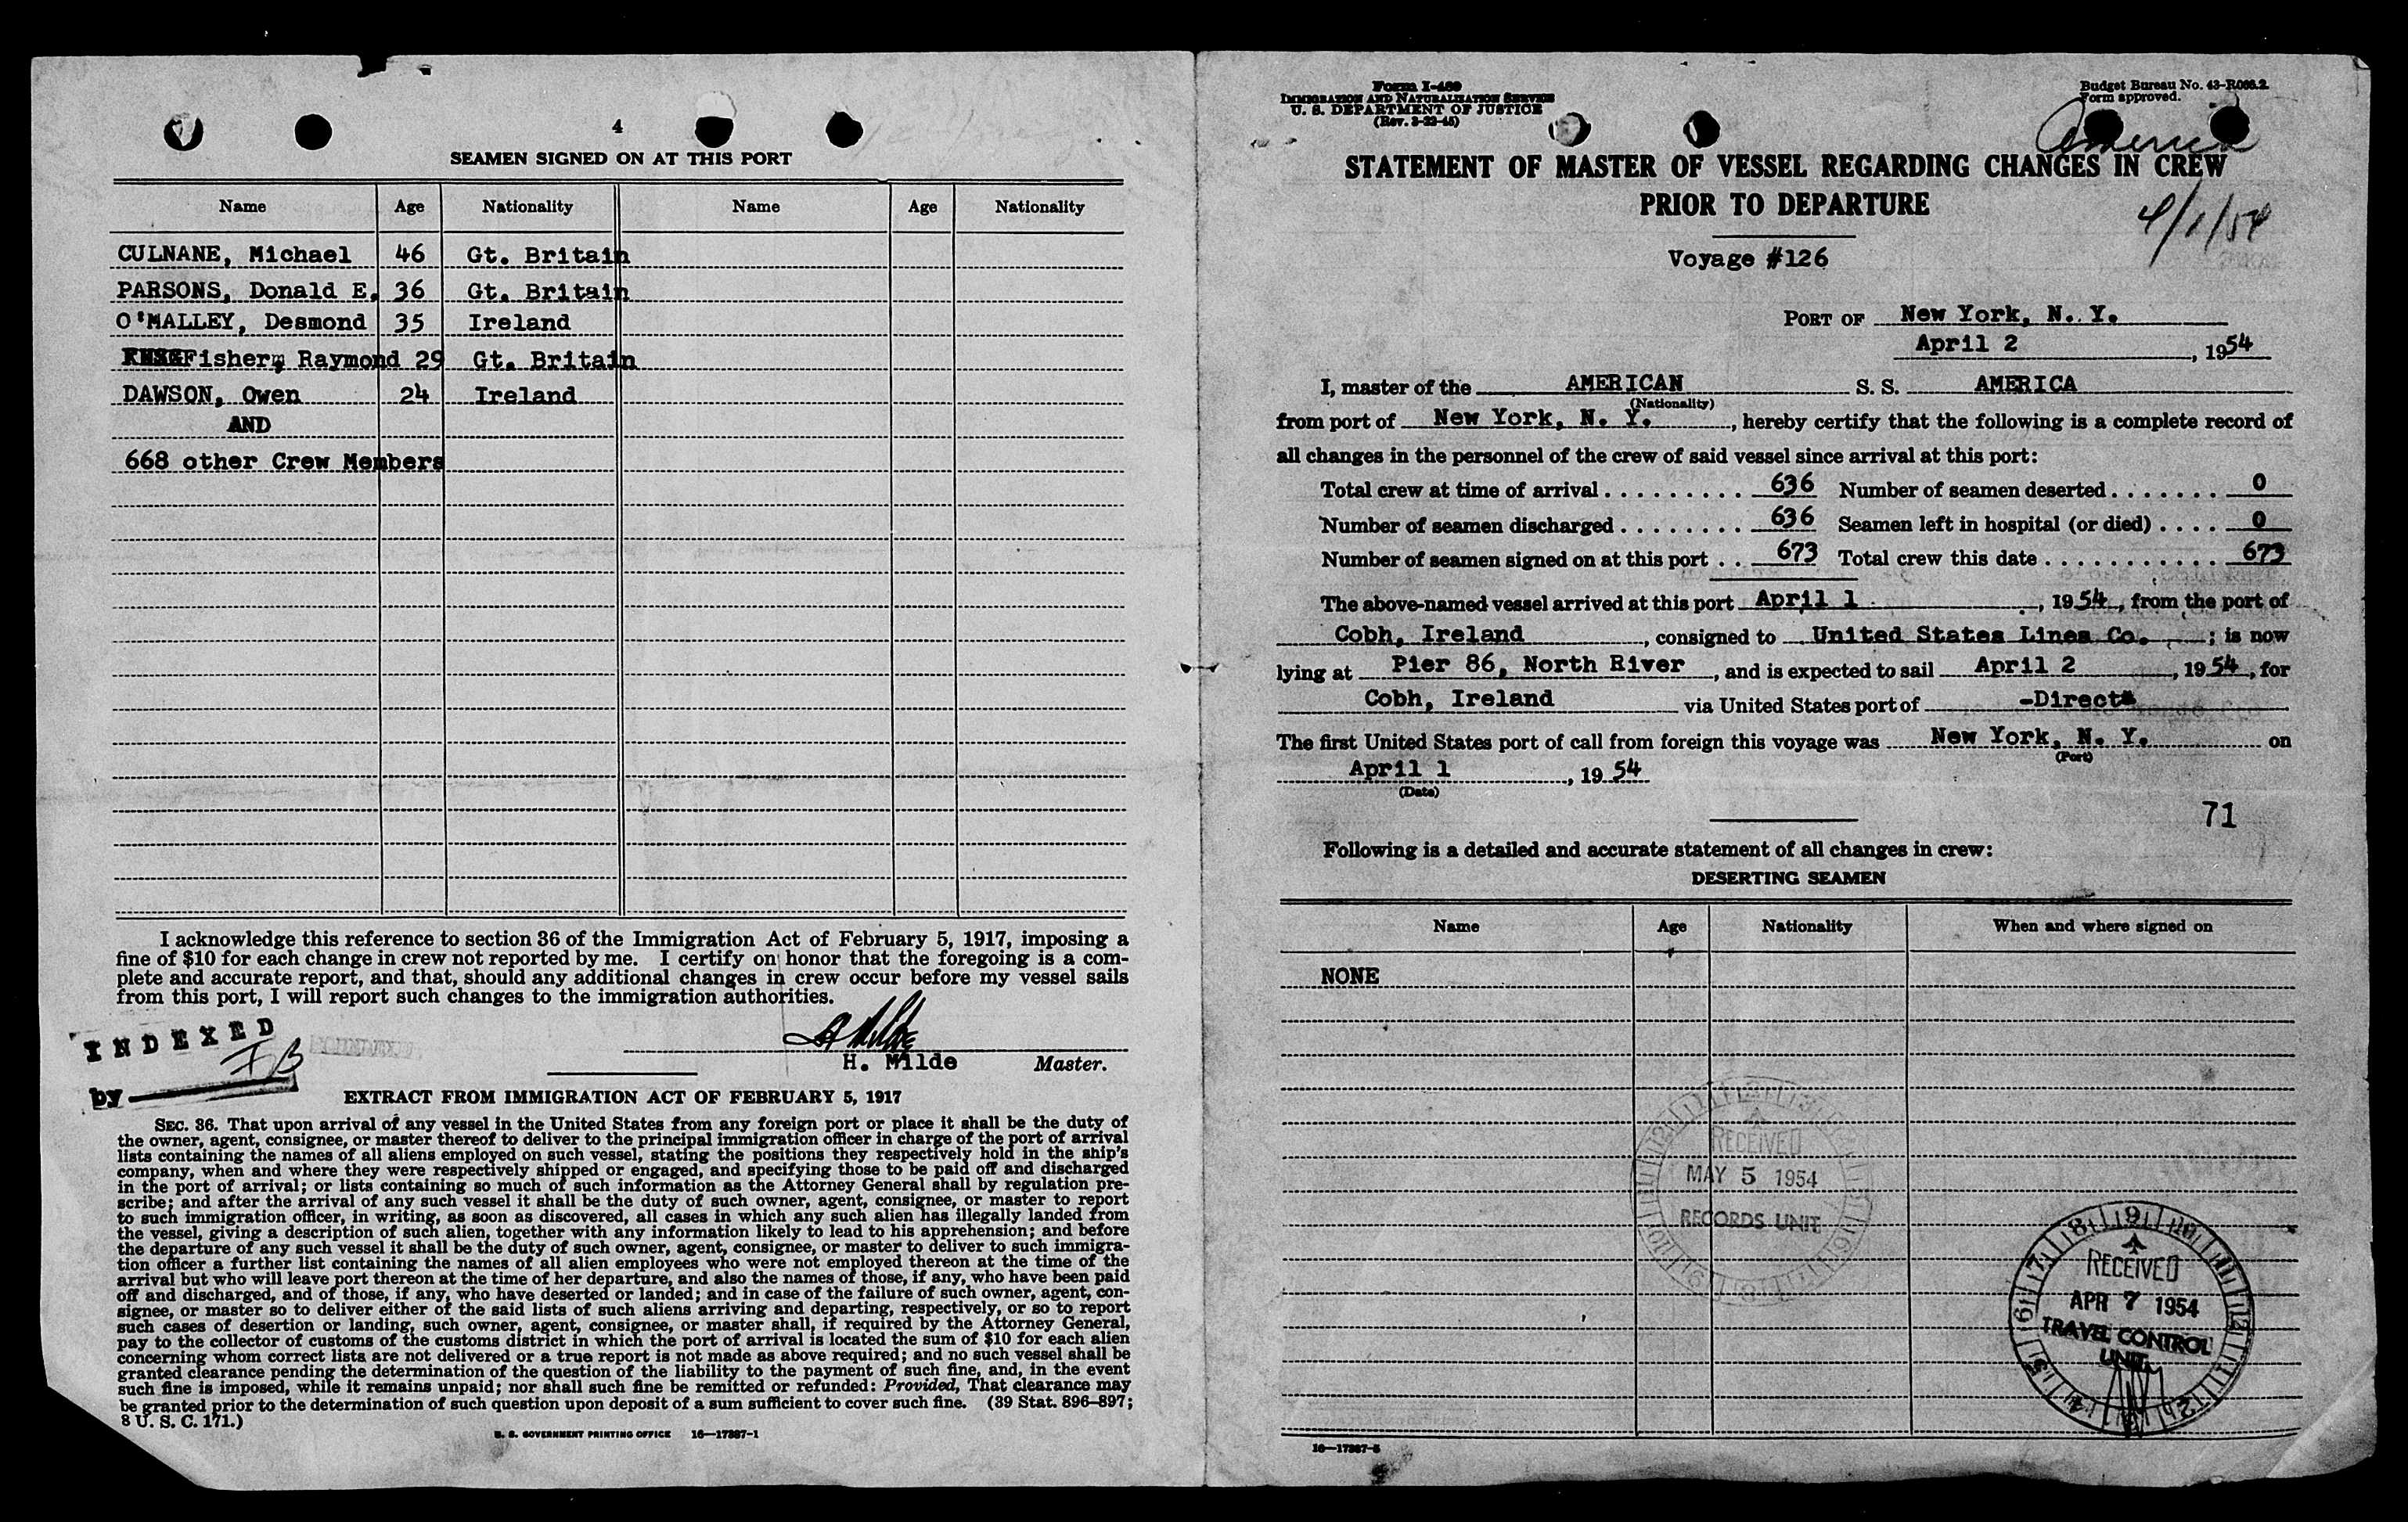 4
SEAMEN SIGNED ON AT THIS PORT
Name Age Nationality Name Age Nationality
CULNANE, Michael 46 Gt. Britain
PARSONS, Donald E. 36 Gt. Britain
O'MALLEY, Desmond 35 Ireland
Fisher, Raymond 29 Gt. Britain
DAWSON, Owen 24 Ireland
AND
668 other Crew Members
I acknowledge this reference to section 36 of the Immigration Act of February 5, 1917, imposing a
fine of $10 for each change in crew not reported by me. I certify on honor that the foregoing is a com-
plete and accurate report, and that, should any additional changes in crew occur before my vessel sails
from this port, I will report such changes to the immigration authorities.
INDEXED
by FB
H. Milde
H. Milde Master.
EXTRACT FROM IMMIGRATION ACT OF FEBRUARY 5, 1917
SEC. 36. That upon arrival of any vessel in the United States from any foreign port or place it shall be the duty of
the owner, agent, consignee, or master thereof to deliver to the principal immigration officer in charge of the port of arrival
lists containing the names of all aliens employed on such vessel, stating the positions they respectively hold in the ship's
company, when and where they were respectively shipped or engaged, and specifying those to be paid off and discharged
in the port of arrival; or lists containing so much of such information as the Attorney General shall by regulation pre-
scribe; and after the arrival of any such vessel it shall be the duty of such owner, agent, consignee, or master to report
to such immigration officer, in writing, as soon as discovered, all cases in which any such alien has illegally landed from
the vessel, giving a description of such alien, together with any information likely to lead to his apprehension; and before
the departure of any such vessel it shall be the duty of such owner, agent, consignee, or master to deliver to such immigra-
tion officer a further list containing the names of all alien employees who were not employed thereon at the time of the
arrival but who will leave port thereon at the time of her departure, and also the names of those, if any, who have been paid
off and discharged, and of those, if any, who have deserted or landed; and in case of the failure of such owner, agent, con-
signee, or master so to deliver either of the said lists of such aliens arriving and departing, respectively, or so to report
such cases of desertion or landing, such owner, agent, consignee, or master shall, if required by the Attorney General,
pay to the collector of customs of the customs district in which the port of arrival is located the sum of $10 for each alien
concerning whom correct lists are not delivered or a true report is not made as above required; and no such vessel shall be
granted clearance pending the determination of the question of the liability to the payment of such fine, and, in the event
such fine is imposed, while it remains unpaid; nor shall such fine be remitted or refunded: Provided, That clearance may
be granted prior to the determination of such question upon deposit of a sum sufficient to cover such fine. (39 Stat. 896-897;
8 U. S. C. 171.)
U. S. GOVERNMENT PRINTING OFFICE 16—17387-1
Form I-489
IMMIGRATION AND NATURALIZATION SERVICE
U. S. DEPARTMENT OF JUSTICE
(Rev. 3-22-45)
Budget Bureau No. 43-R086.2.
Form approved.
America
STATEMENT OF MASTER OF VESSEL REGARDING CHANGES IN CREW
PRIOR TO DEPARTURE
4/1/54
Voyage #126
PORT OF New York, N. Y.
April 2, 1954
I, master of the AMERICAN S. S. AMERICA
(Nationality)
from port of New York, N. Y., hereby certify that the following is a complete record of
all changes in the personnel of the crew of said vessel since arrival at this port:
Total crew at time of arrival 636 Number of seamen deserted 0
Number of seamen discharged 636 Seamen left in hospital (or died) 0
Number of seamen signed on at this port 673 Total crew this date 673
The above-named vessel arrived at this port April 1, 1954, from the port of
Cobh, Ireland, consigned to United States Lines Co.; is now
lying at Pier 86, North River, and is expected to sail April 2, 1954, for
Cobh, Ireland via United States port of -Direct-
The first United States port of call from foreign this voyage was New York, N. Y. on
(Port)
April 1, 1954
(Date)
71
Following is a detailed and accurate statement of all changes in crew:
DESERTING SEAMEN
Name Age Nationality When and where signed on
NONE
RECEIVED
MAY 5 1954
RECORDS UNIT
RECEIVED
APR 7 1954
TRAVEL CONTROL
UNIT
16—17387-5